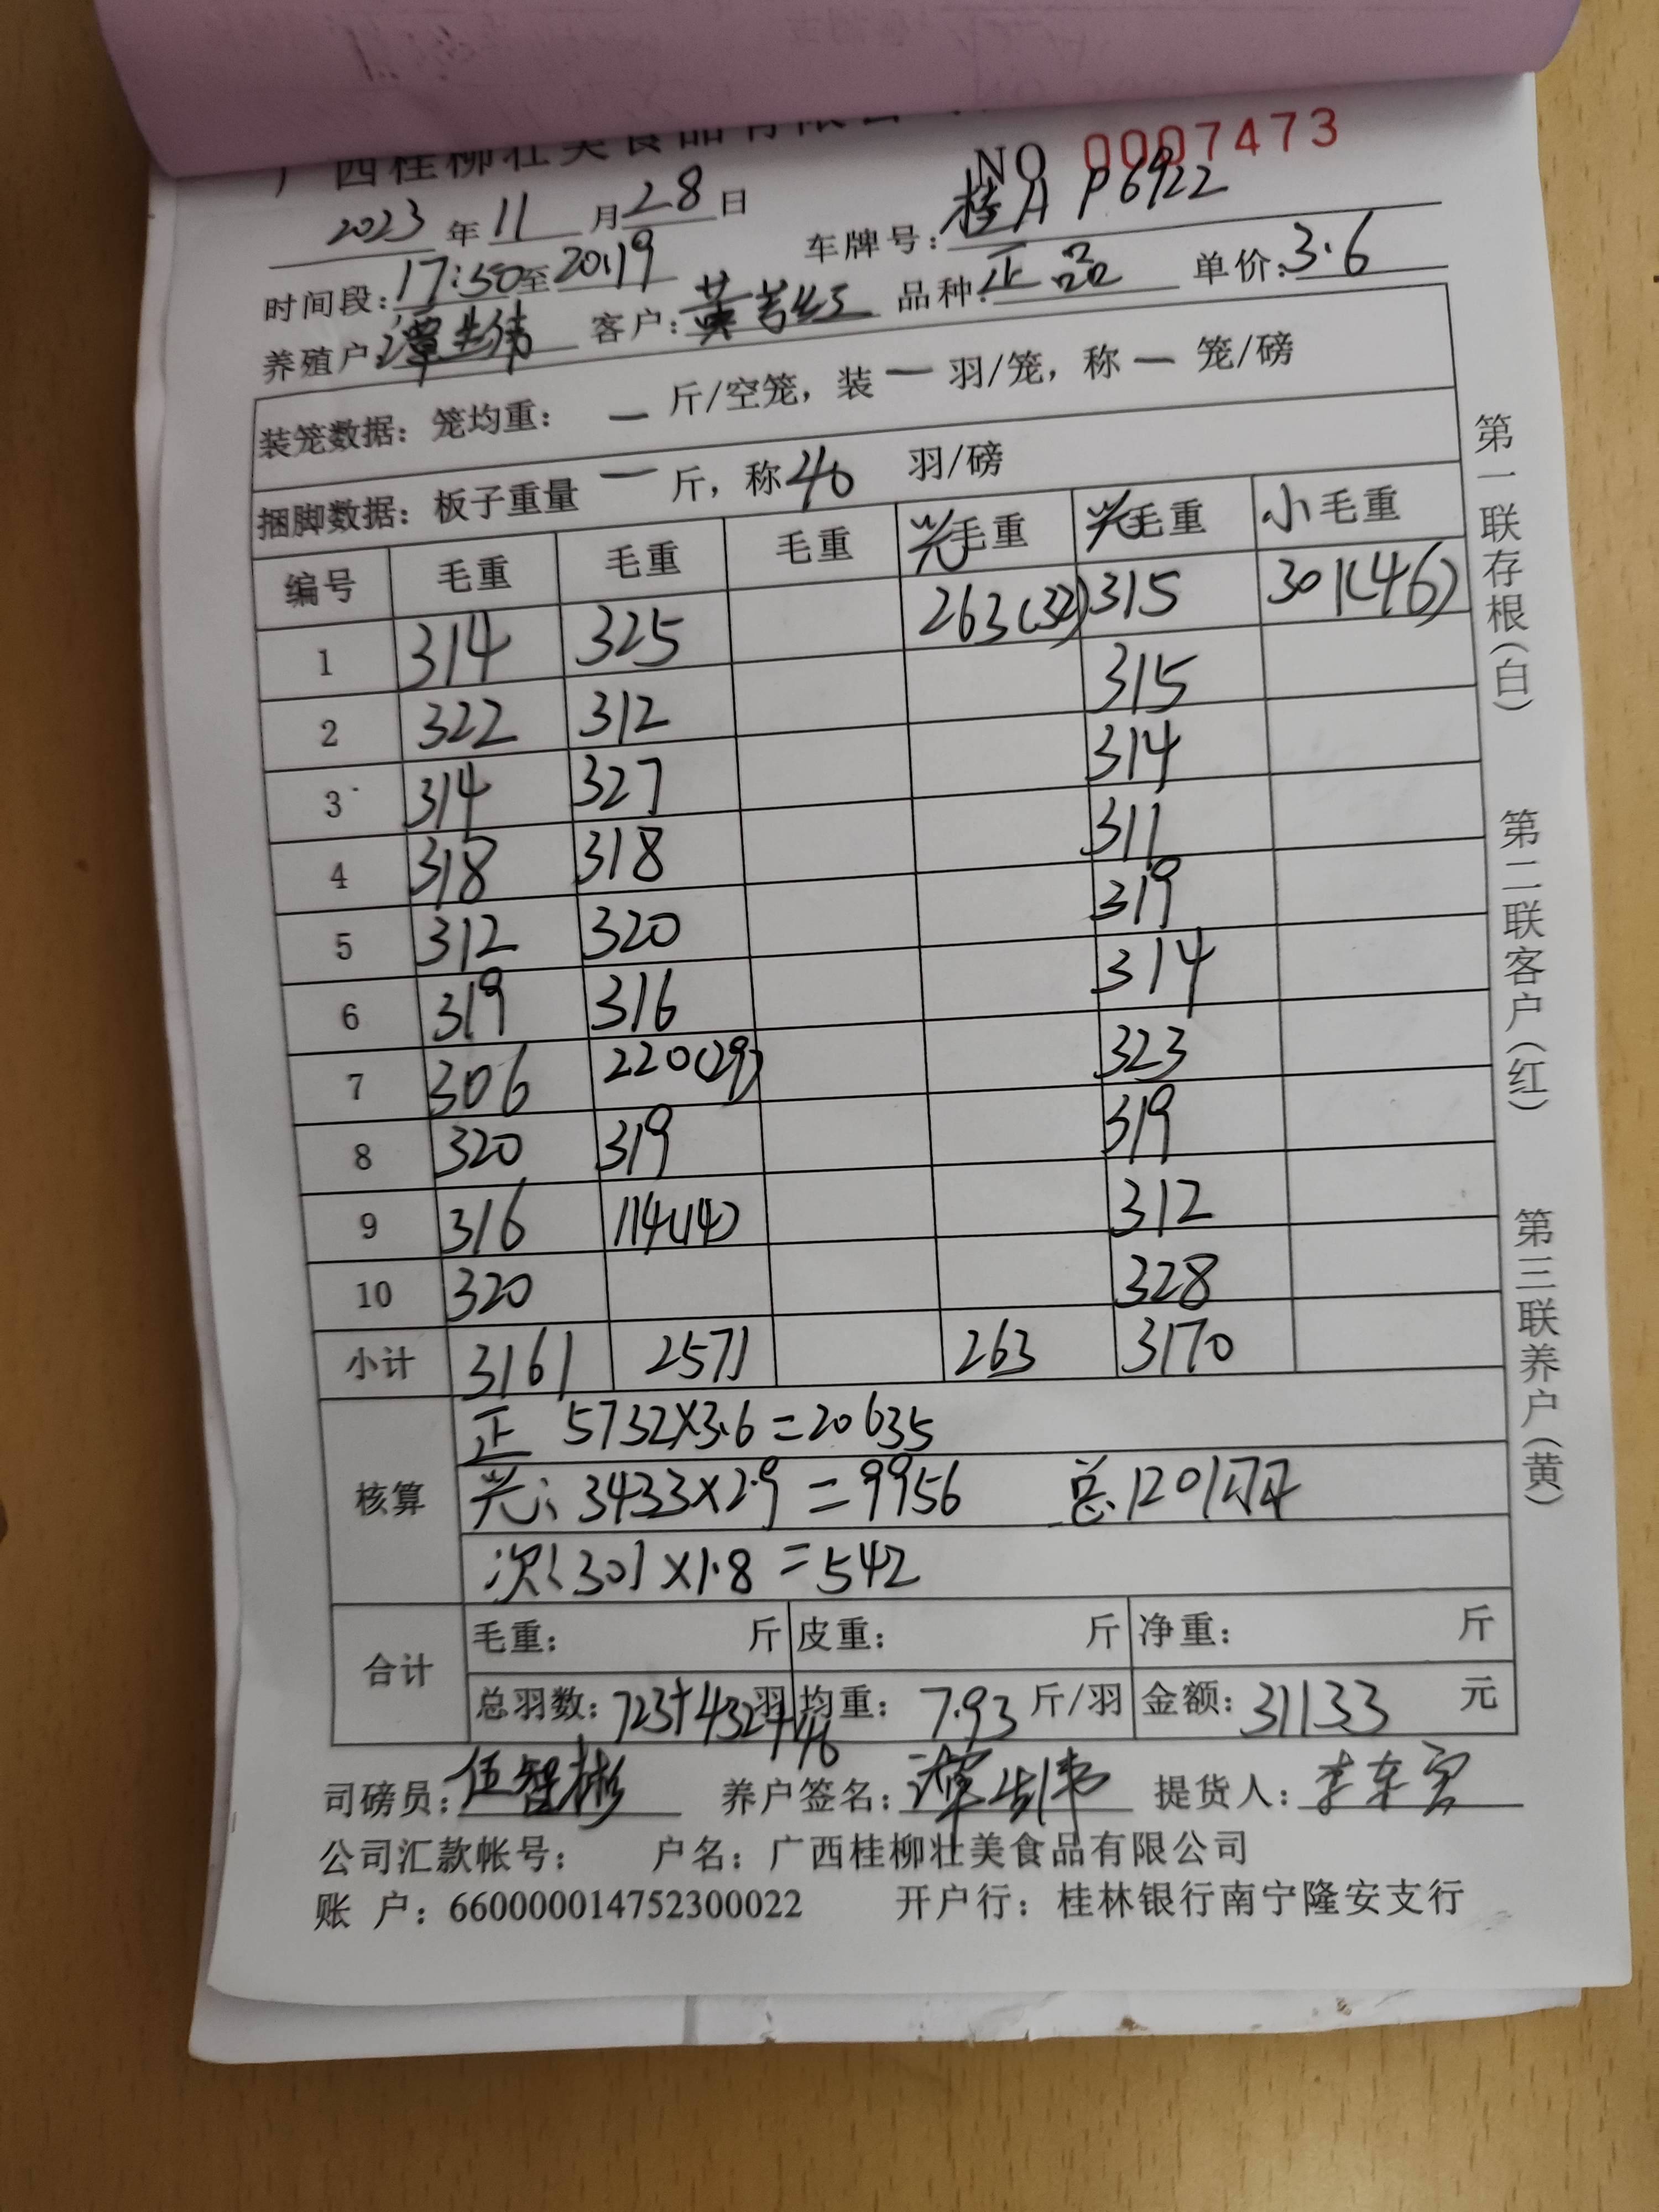 广西桂柳壮美食品有限公司
NO 0007473
2023年11月28日 车牌号:桂A P6922
时间段:17:50至20:19 品种:正品 单价:3.6
养殖户: 客户:
装笼数据: 笼均重: — 斤/空笼, 装 — 羽/笼, 称 — 笼/磅
捆脚数据: 板子重量 — 斤, 称40 羽/磅
编号 毛重 毛重 毛重 毛重 毛重 小毛重
1 314 325 263(32) 315 301(46)
2 322 312 315
3 314 327 314
4 318 318 311
5 312 320 319
6 319 316 314
7 306 220(29) 323
8 320 319 319
9 316 114(14) 312
10 320 328
小计 3161 2571 263 3170
核算
正 5732×3.6=20635
3433×2.9=9956
次:301×1.8=542
合计
毛重: 斤 皮重: 斤 净重: 斤
总羽数:723+432+46羽 均重:7.93斤/羽 金额:31133元
司磅员:伍智彬 养户签名: 提货人:
公司汇款帐号: 户名:广西桂柳壮美食品有限公司
账 户:660000014752300022 开户行:桂林银行南宁隆安支行
第一联存根(白) 第二联客户(红) 第三联养户(黄)